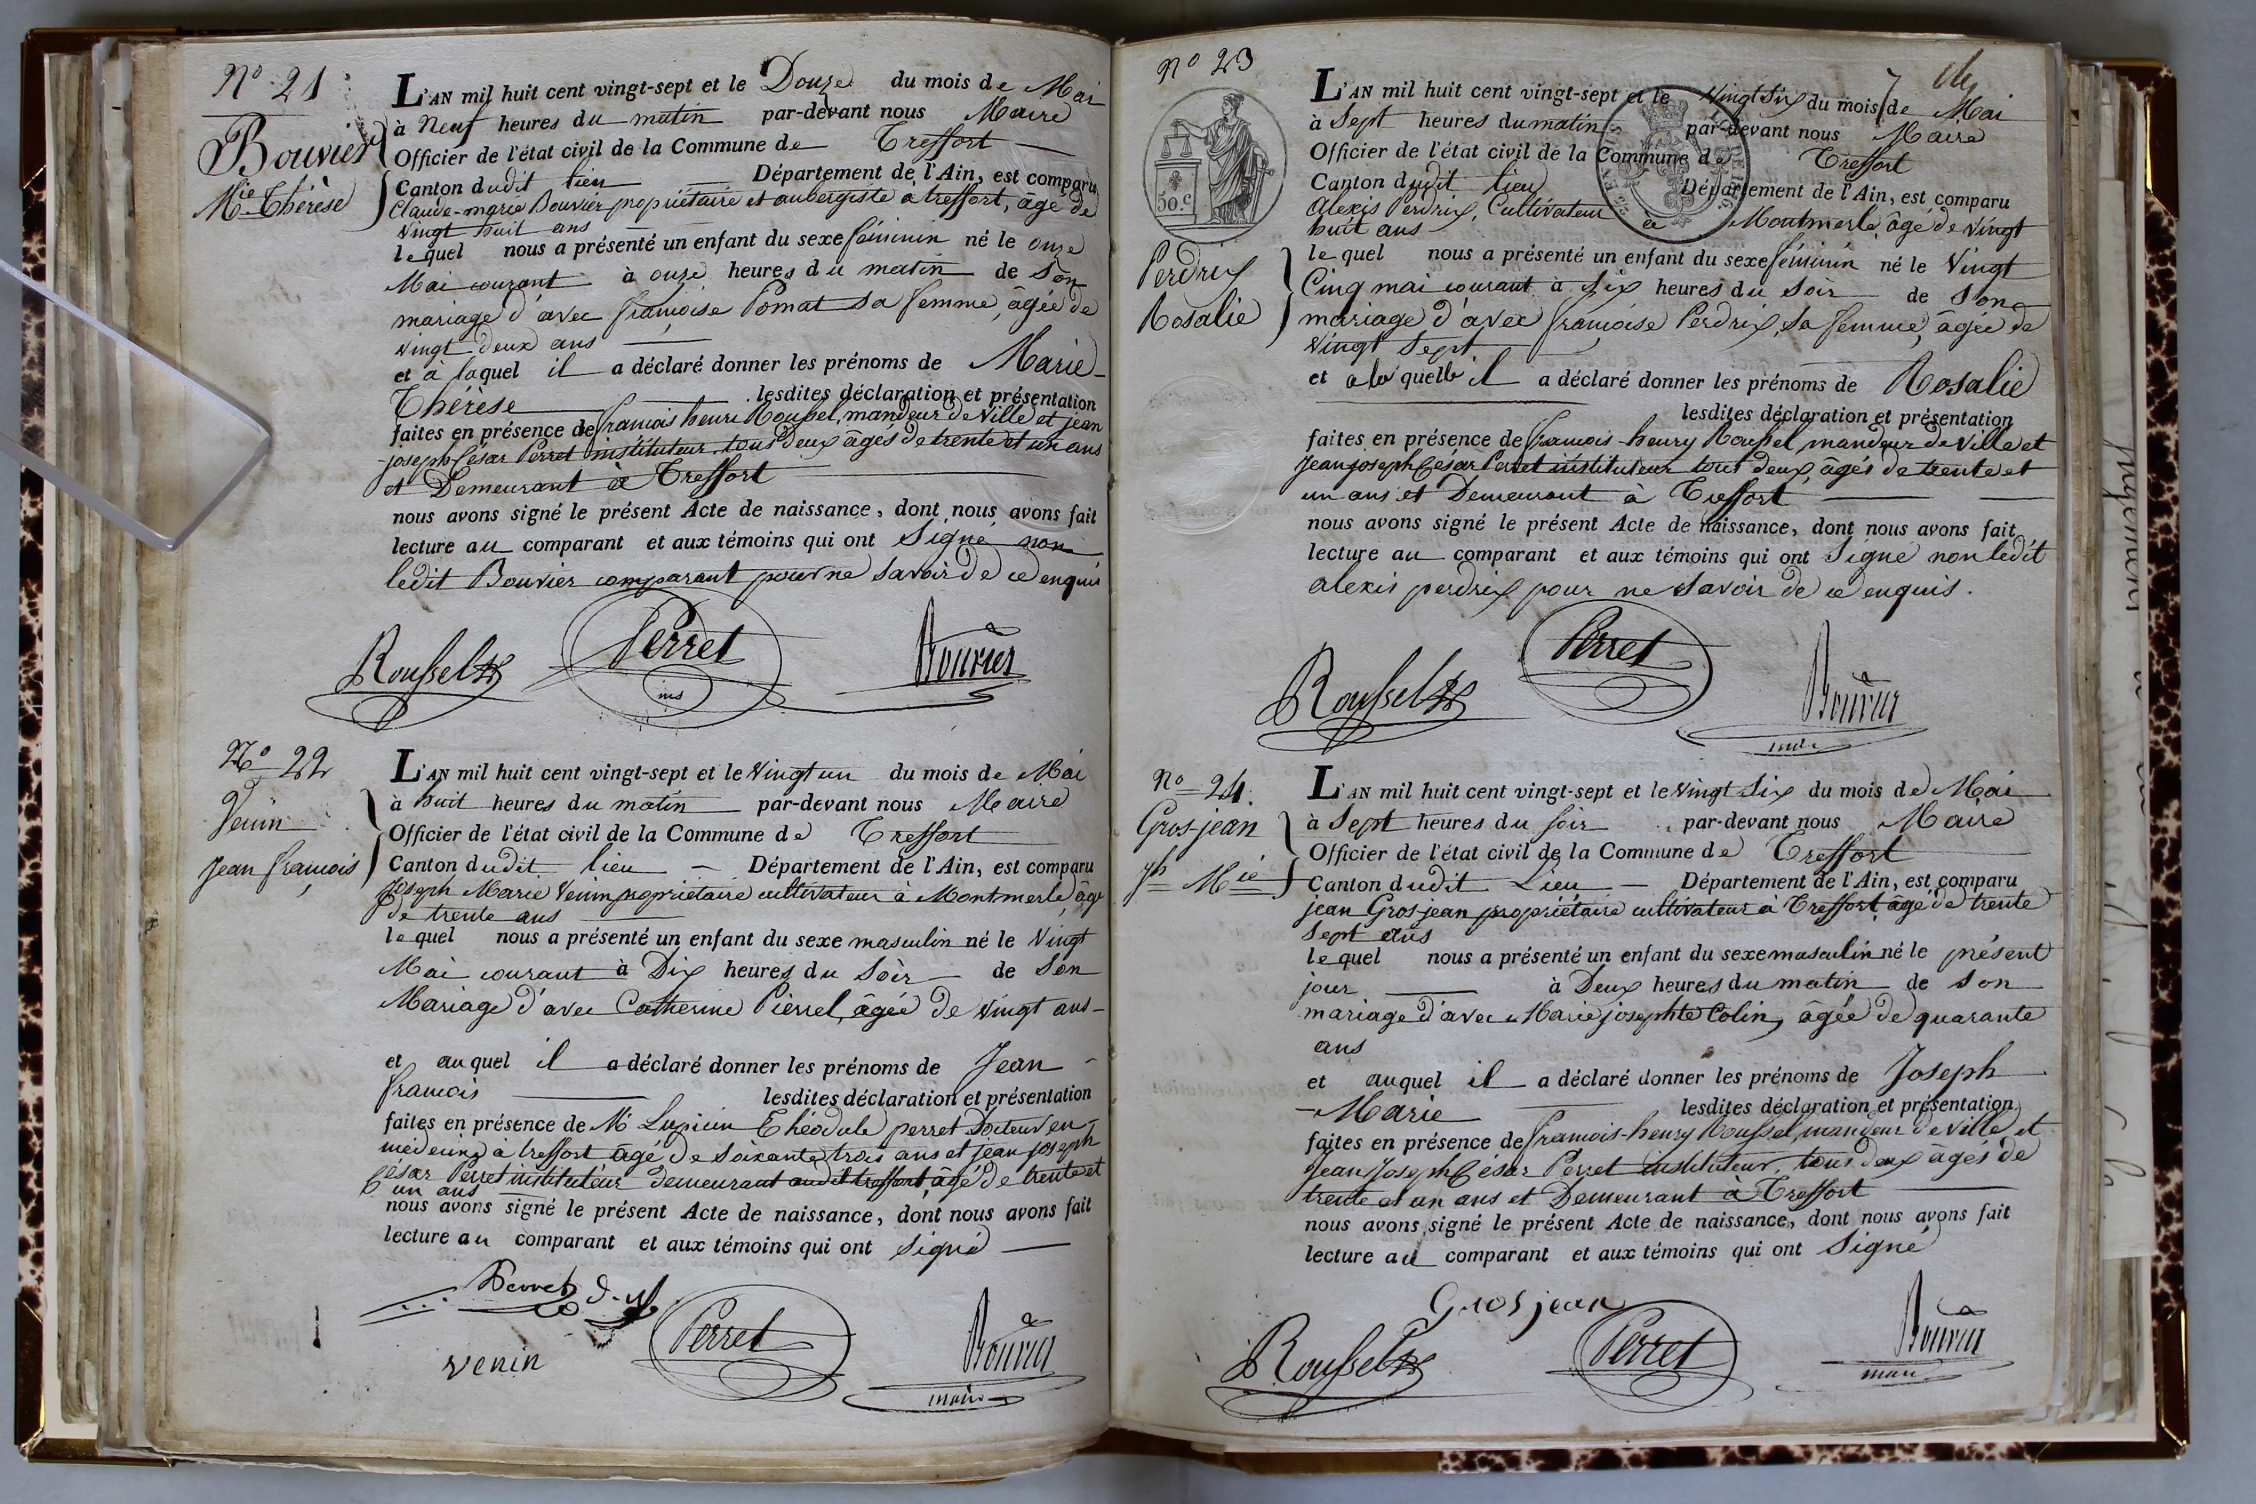 N° 21
Bouvier
Mie Thérèse
L'AN mil huit cent vingt-sept et le Douze du mois de Mai
à Neuf heures du matin par-devant nous Maire
Officier de l'état civil de la Commune de Treffort
Canton dudit lieu Département de l'Ain, est comparu
Claude-marie Bouvier propriétaire et aubergiste à treffort, âgé de
vingt huit ans
lequel nous a présenté un enfant du sexe féminin né le onze
Mai courant à onze heures du matin de son
mariage d'avec françoise Pomat sa femme, âgée de
vingt deux ans
et à laquel il a déclaré donner les prénoms de Marie-
Thérèse lesdites déclaration et présentation
faites en présence de francois henri Roussel, mandeur de ville et jean
joseph César Perret instituteur, tous deux âgés de trente et un ans
et Demeurant à Treffort
nous avons signé le présent Acte de naissance, dont nous avons fait
lecture au comparant et aux témoins qui ont Signé non
ledit Bouvier comparant pour ne savoir de ce enquis
Roussel Perret Bouvier
N° 22
Venin
Jean françois
L'AN mil huit cent vingt-sept et le vingt un du mois de Mai
à huit heures du matin par-devant nous Maire
Officier de l'état civil de la Commune de Treffort
Canton dudit lieu Département de l'Ain, est comparu
Joseph Marie Venin propriétaire cultivateur à Montmerle, âgé
de trente ans
lequel nous a présenté un enfant du sexe masculin né le vingt
Mai courant à Dix heures du soir de son
Mariage d'avec Catherine Pierrel, âgée de vingt ans
et auquel il a déclaré donner les prénoms de Jean
francois lesdites déclaration et présentation
faites en présence de Mr Lupicin Théodule perret Docteur en
médecine à treffort âgé de soixante trois ans et jean joseph
César Perret instituteur demeurant audit treffort, âgé de trente et
un ans
nous avons signé le présent Acte de naissance, dont nous avons fait
lecture au comparant et aux témoins qui ont signé
Perret
venin Perret Bouvier
maire
N° 23
50.c
Perdrix
Rosalie
L'AN mil huit cent vingt-sept et le vingt Six du mois de Mai
à Sept heures du matin par-devant nous Maire
Officier de l'état civil de la Commune de Treffort
Canton dudit lieu Département de l'Ain, est comparu
Alexis Perdrix, Cultivateur à Montmerle, âgé de vingt
huit ans
lequel nous a présenté un enfant du sexe féminin né le vingt
Cinq mai courant à six heures du soir de son
mariage d'avec françoise Perdrix, sa femme, âgée de
vingt sept
et a la quelle il a déclaré donner les prénoms de Rosalie
lesdites déclaration et présentation
faites en présence de francois-henry Roussel, mandeur de ville et
jean joseph César Perret instituteur tous deux âgés de trente et
un ans et Demeurant à Treffort
nous avons signé le présent Acte de naissance, dont nous avons fait
lecture au comparant et aux témoins qui ont signé non ledit
alexis perdrix pour ne savoir de ce enquis.
Roussel Perret Bouvier
N° 24.
Grosjean
jh Mie
L'AN mil huit cent vingt-sept et le vingt Six du mois de Mai
à Sept heures du soir par-devant nous Maire
Officier de l'état civil de la Commune de Treffort
Canton dudit Lieu Département de l'Ain, est comparu
jean Grosjean propriétaire cultivateur à Treffort, âgé de trente
Sept ans
lequel nous a présenté un enfant du sexe masculin né le présent
jour à Deux heures du matin de son
mariage d'avec Marie josephte Colin, âgée de quarante
ans
et auquel il a déclaré donner les prénoms de Joseph
Marie lesdites déclaration et présentation
faites en présence de francois-henry Roussel, mandeur de ville et
Jean Joseph César Perret instituteur, tous deux âgés de
trente et un ans et Demeurant à Treffort
nous avons signé le présent Acte de naissance, dont nous avons fait
lecture au comparant et aux témoins qui ont signé
Grosjean
Roussel Perret Bouvier
maire